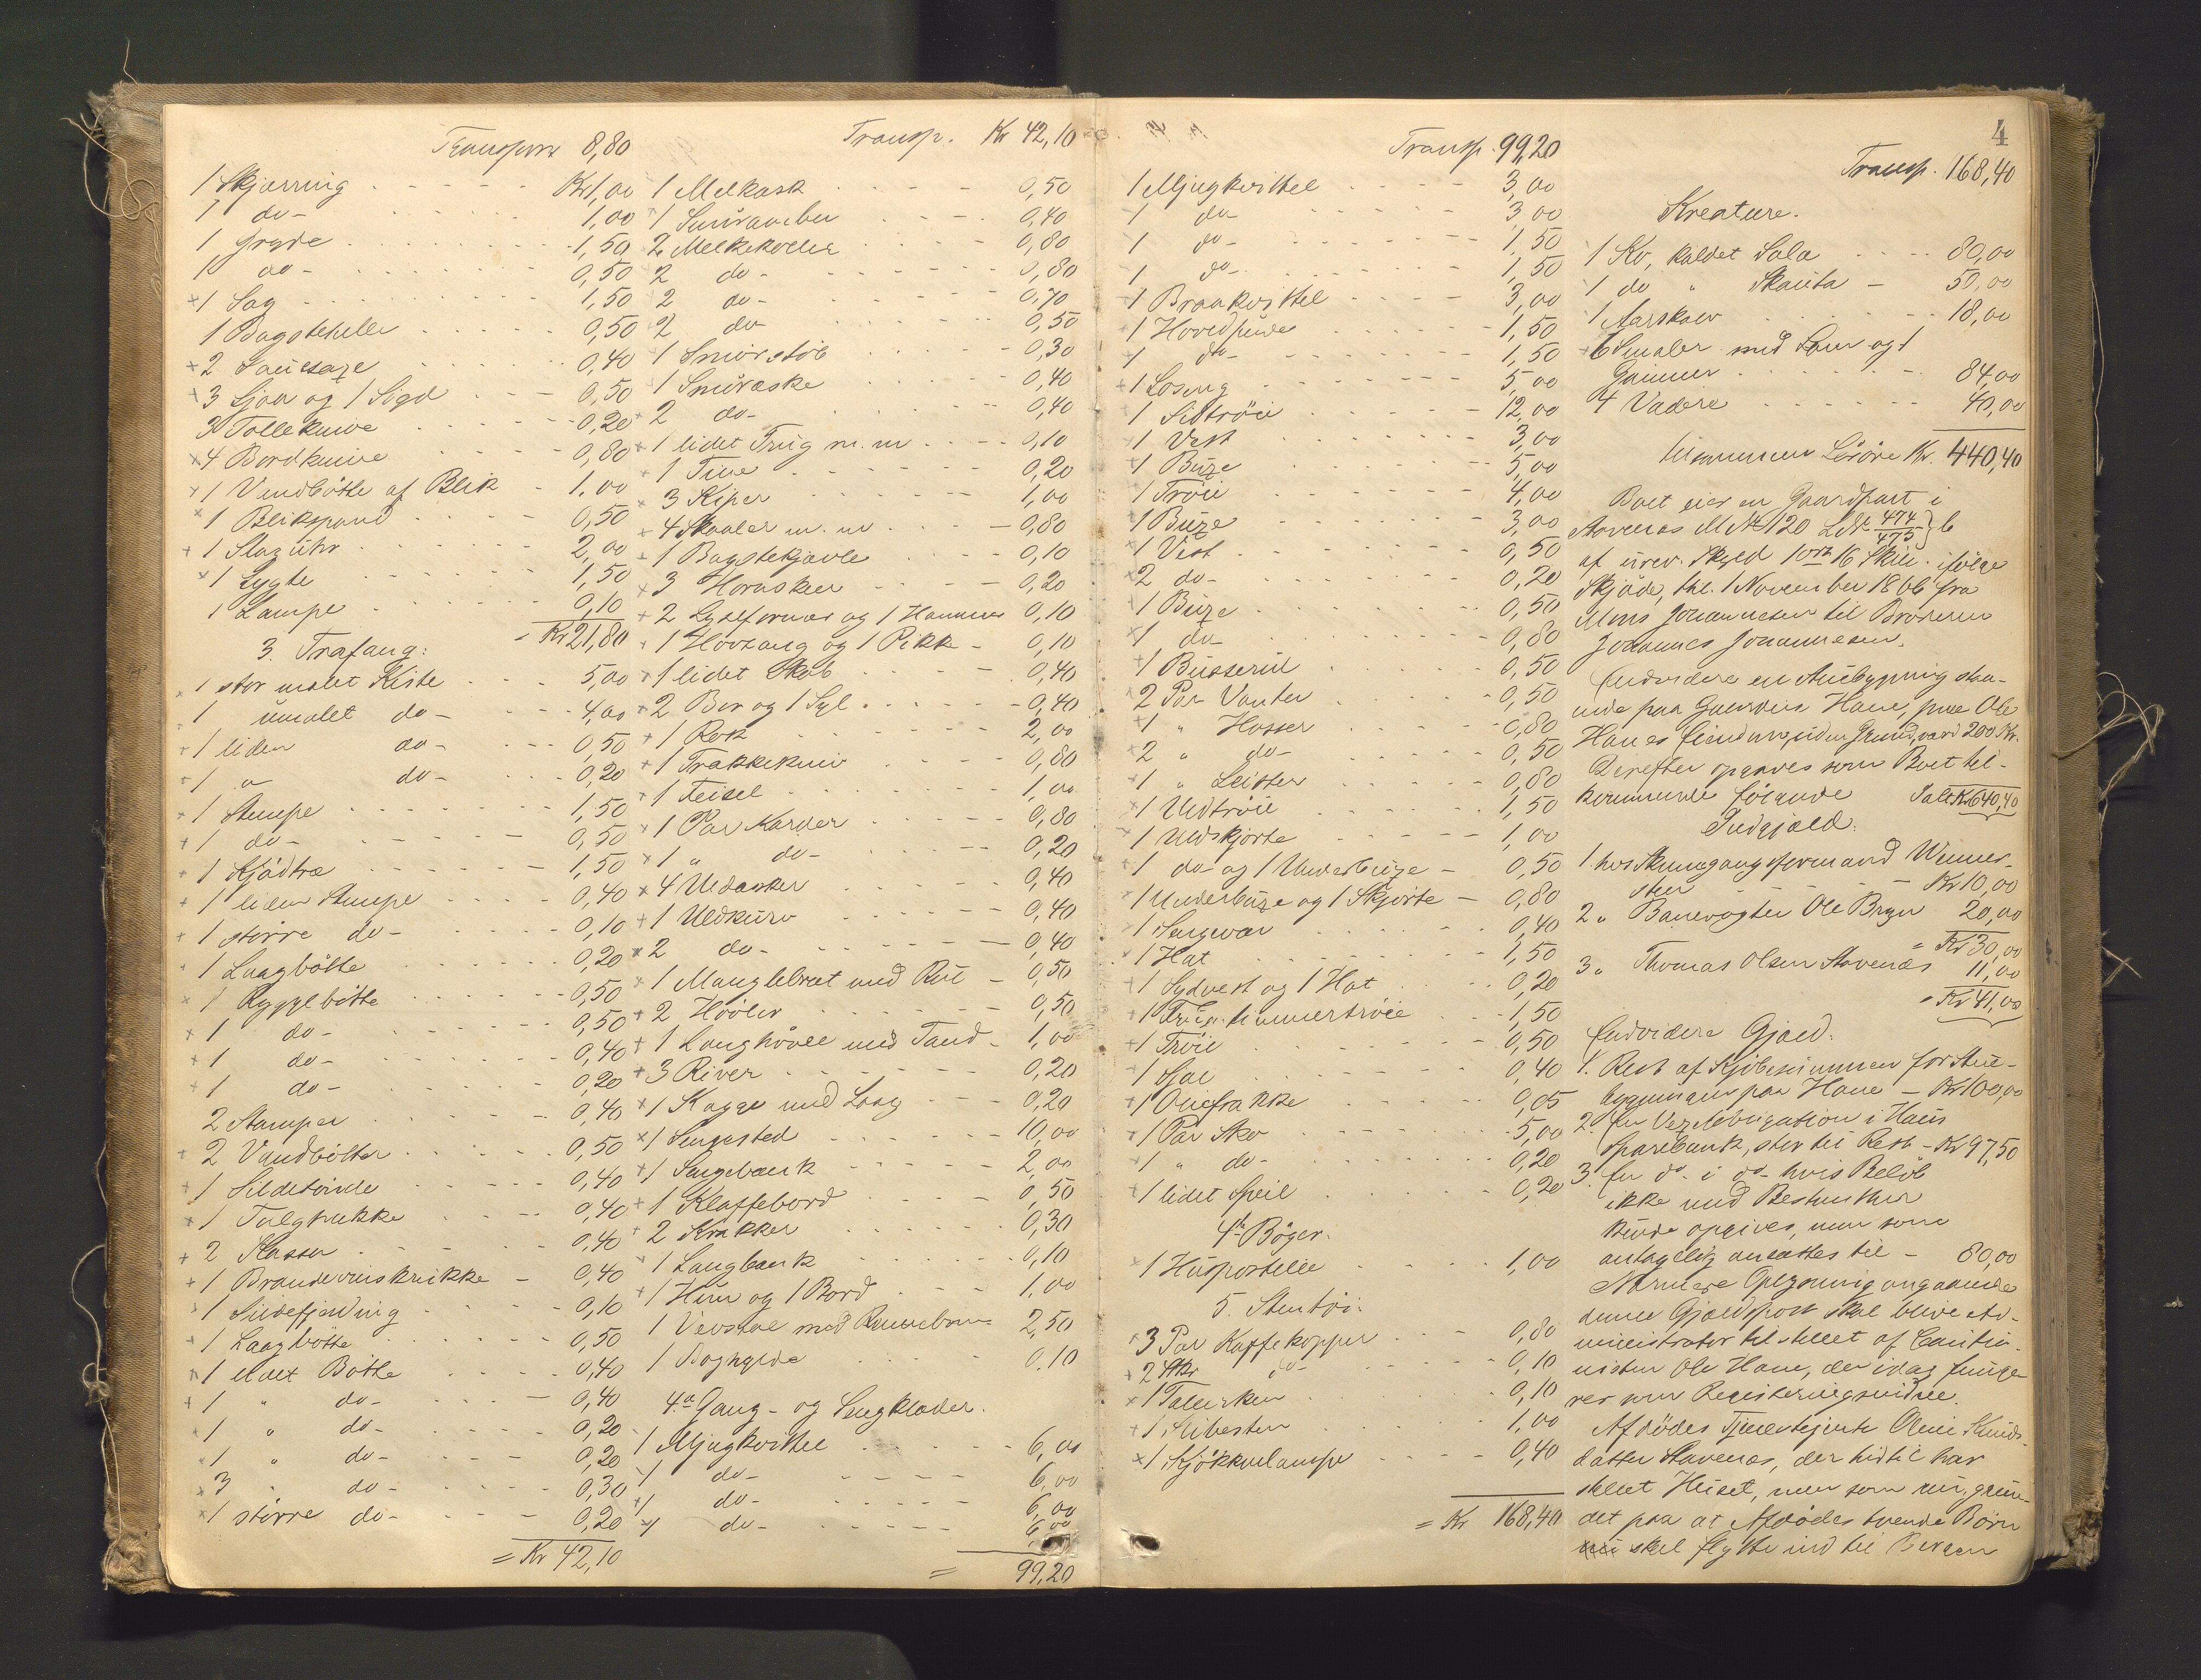 Transport 8,80
1 Skjærring Kr 1,00
1 do- 1,00
1 Gryde 1,50
1 do- 0,50
1 Sag 1,50
1 Bagstehelle 0,50
2 Sauesaxe 0,40
3 Ljaa og 1 Sigd 0,50
3 Tolleknive 0,20
4 Bordknive 0,80
1 Vandbøtte af Blik 1,00
1 Blikspand 0,50
1 Slaguhr 2,00
1 Lygte 1,50
1 Lampe 0,10
= Kr 21,80
3. Træfang:
1 stor malet Kiste 5,00
1 umalet do- 4,00
1 liden do- 0,50
1 " do- 0,20
1 Stampe 1,50
1 do- 0,50
1 Kjødtræ 1,50
1 liden Stampe 0,40
1 større do- 0,10
1 Laagbøtte 0,20
1 Ryggelbøtte 0,50
1 do- 0,50
1 do- 0,40
1 do- 0,20
2 Stamper 0,40
2 Vandbøtter 0,50
1 Sildetønde 0,40
1 Talgkrukke 0,40
2 Kasser 0,40
1 Brændeviinskrukke 0,40
1 Sildefjerding 0,10
1 Laagbøtte 0,50
1 malet Bøtte 0,40
1 " do- 0,40
1 " do- 0,20
1 " do- 0,20
3 " do- 0,30
1 større do- 0,20
= Kr 42,10
Transp. Kr 42,10
1 Melkask 0,50
1 Smørambar 0,40
2 Melkekoller 0,80
2 do- 0,80
2 do- 0,70
2 do- 0,50
1 Smørstøb 0,30
1 Smøræske 0,40
2 do- 0,40
1 lidet Trug m.m 0,10
1 Tine 0,20
3 Kiper 1,00
4 Skaaler m.m 0,80
1 Bagstekjævle 0,10
3 Hornskeer 0,20
2 Lyseformer og 1 Hammer 0,10
1 Hovtang og 1 Pikk 0,10
1 lidet Skab 0,40
2 Bor og 1 Syl 0,40
1 Rok 2,00
1 Trækkekniv 0,80
1 Feisel 1,00
1 Par Karder 0,80
1 " do- 0,20
4 Uldasker 0,40
1 Uldkurv 0,40
2 do- 0,40
1 Manglebræt med Rul 0,50
2 Høvler 0,50
1 Langhøvel med Tand 1,00
3 River 0,20
1 Kagge med Laag 0,20
1 Sengested 10,00
1 Sengebænk 2,00
1 Klaffebord 0,50
2 Krakker 0,30
1 Langbænk 0,10
1 Hum og 1 Bord 1,00
1 Vævstol med Rennebom 2,50
1 Boghylde 0.10
4.a Gang- og Sengklæder.
1 Mjugkvittel 6,00
1 do- 6,00
1 do- 6,00
1 do- 6,00
= 99,20
Transp. 99,20
1 Mjugkvittel 3,00
1 do- 3,00
1 do- 1,50
1 do- 1,50
1 Braakvittel 3,00
1 Hovedpude 1,50
1 do- 1,50
1 Losing 5,00
1 Sidtrøie 12,00
1 Vest 3,00
1 Buxe 5,00
1 Trøie 4,00
1 Buxe 3,00
1 Vest 0,50
2 do- 0,20
1 Buxe 0,50
1 do- 0,80
1 Busserul 0,50
2 Par Vanter 0,50
1 " Hosser 0,80
2 " do- 0,50
1 " Leister 0,80
1 Uldtrøie 1,50
1 Uldskjorte 1,00
1 do- og 1 Underbuxe 0,50
1 Underbuxe og 1 Skjorte 0,80
1 Sengevær 0,40
1 Hat 1,50
1 Sydvest og 1 Hat 0,20
1 Fruentimmertrøie 1,50
1 Trøie 0,50
1 Sjal 0,40
1 Oliefrakke 0,05
1 Par Sko 5,00
1 " do- 0,20
1 lidet Speil 0,20
4b Bøger.
1 Huspostille 1,00
5. Stentøi:
3 Par Kaffekopper 0,80
2 Stkr do- 0,10
1 Tallerken 0,10
1 Slibesten 1,00
1 Kjøkkenlampe 0,40
= Kr 168,40
4
Transp. 168,40
Kreature.
1 Ko, kaldet Sala 80,00
1 do " Skauta 50,00
1 Aarskalv 18,00
6 Smaler med Lam og 1
Gimmer 84,00
4 Vædere 40,00
tilsammen Løsøre Kr. 440,40
Boet eier en Gaardpart i
Stavenæs M Nr 120 LNr 474/475} b
af urev. Skyld 1 ort 16 Skill. ifølge
Skjøde, thl. 1 November 1866 fra
Mons Johannesen til Broderen
Johannes Johannesen.
Endvidere en Stuebygning staa-
ende paa Gaarden Hane, paa Ole
Hanes Eiendom, uden Grund, værd 200 Kr.
Derefter opgaves som Boet til-
kommende følgende Sale Kr 640,40
Indgjæld:
1. hos Skinnegangsformand Wenner-
sten Kr 10,00
2 " Banevogter Ole Brgn 20,00
= Kr 30,00
3 " Thomas Olsen Stavenæs 11,00
= Kr 41,00
Endvidere Gjæld:
1. Rest af Kjøbesummen for Stue-
bygningen paa Hane Kr 100,00
2. En Vexelobligation i Haus
Sparebank, stor til Rest Kr 97,50
3. En do. i do- hvis Beløb
ikke med Bestemthed
kunde opgives, men som
antagelig ansattes til 80,00
Nærmere Oplysning angaaende
denne Gjældspost skal blive Ad-
ministrator tilstillet af Cautio-
nisten Ole Hane, der idag funge-
rer som Registreringsvidne.
Afdødes Tjenestejente Oline Knuds-
datter Stavenæs, der hidtil har
stellet Huset, men som nu, grun-
det paa at Afdødes tvende Børn
skal flytte ind til Bergen